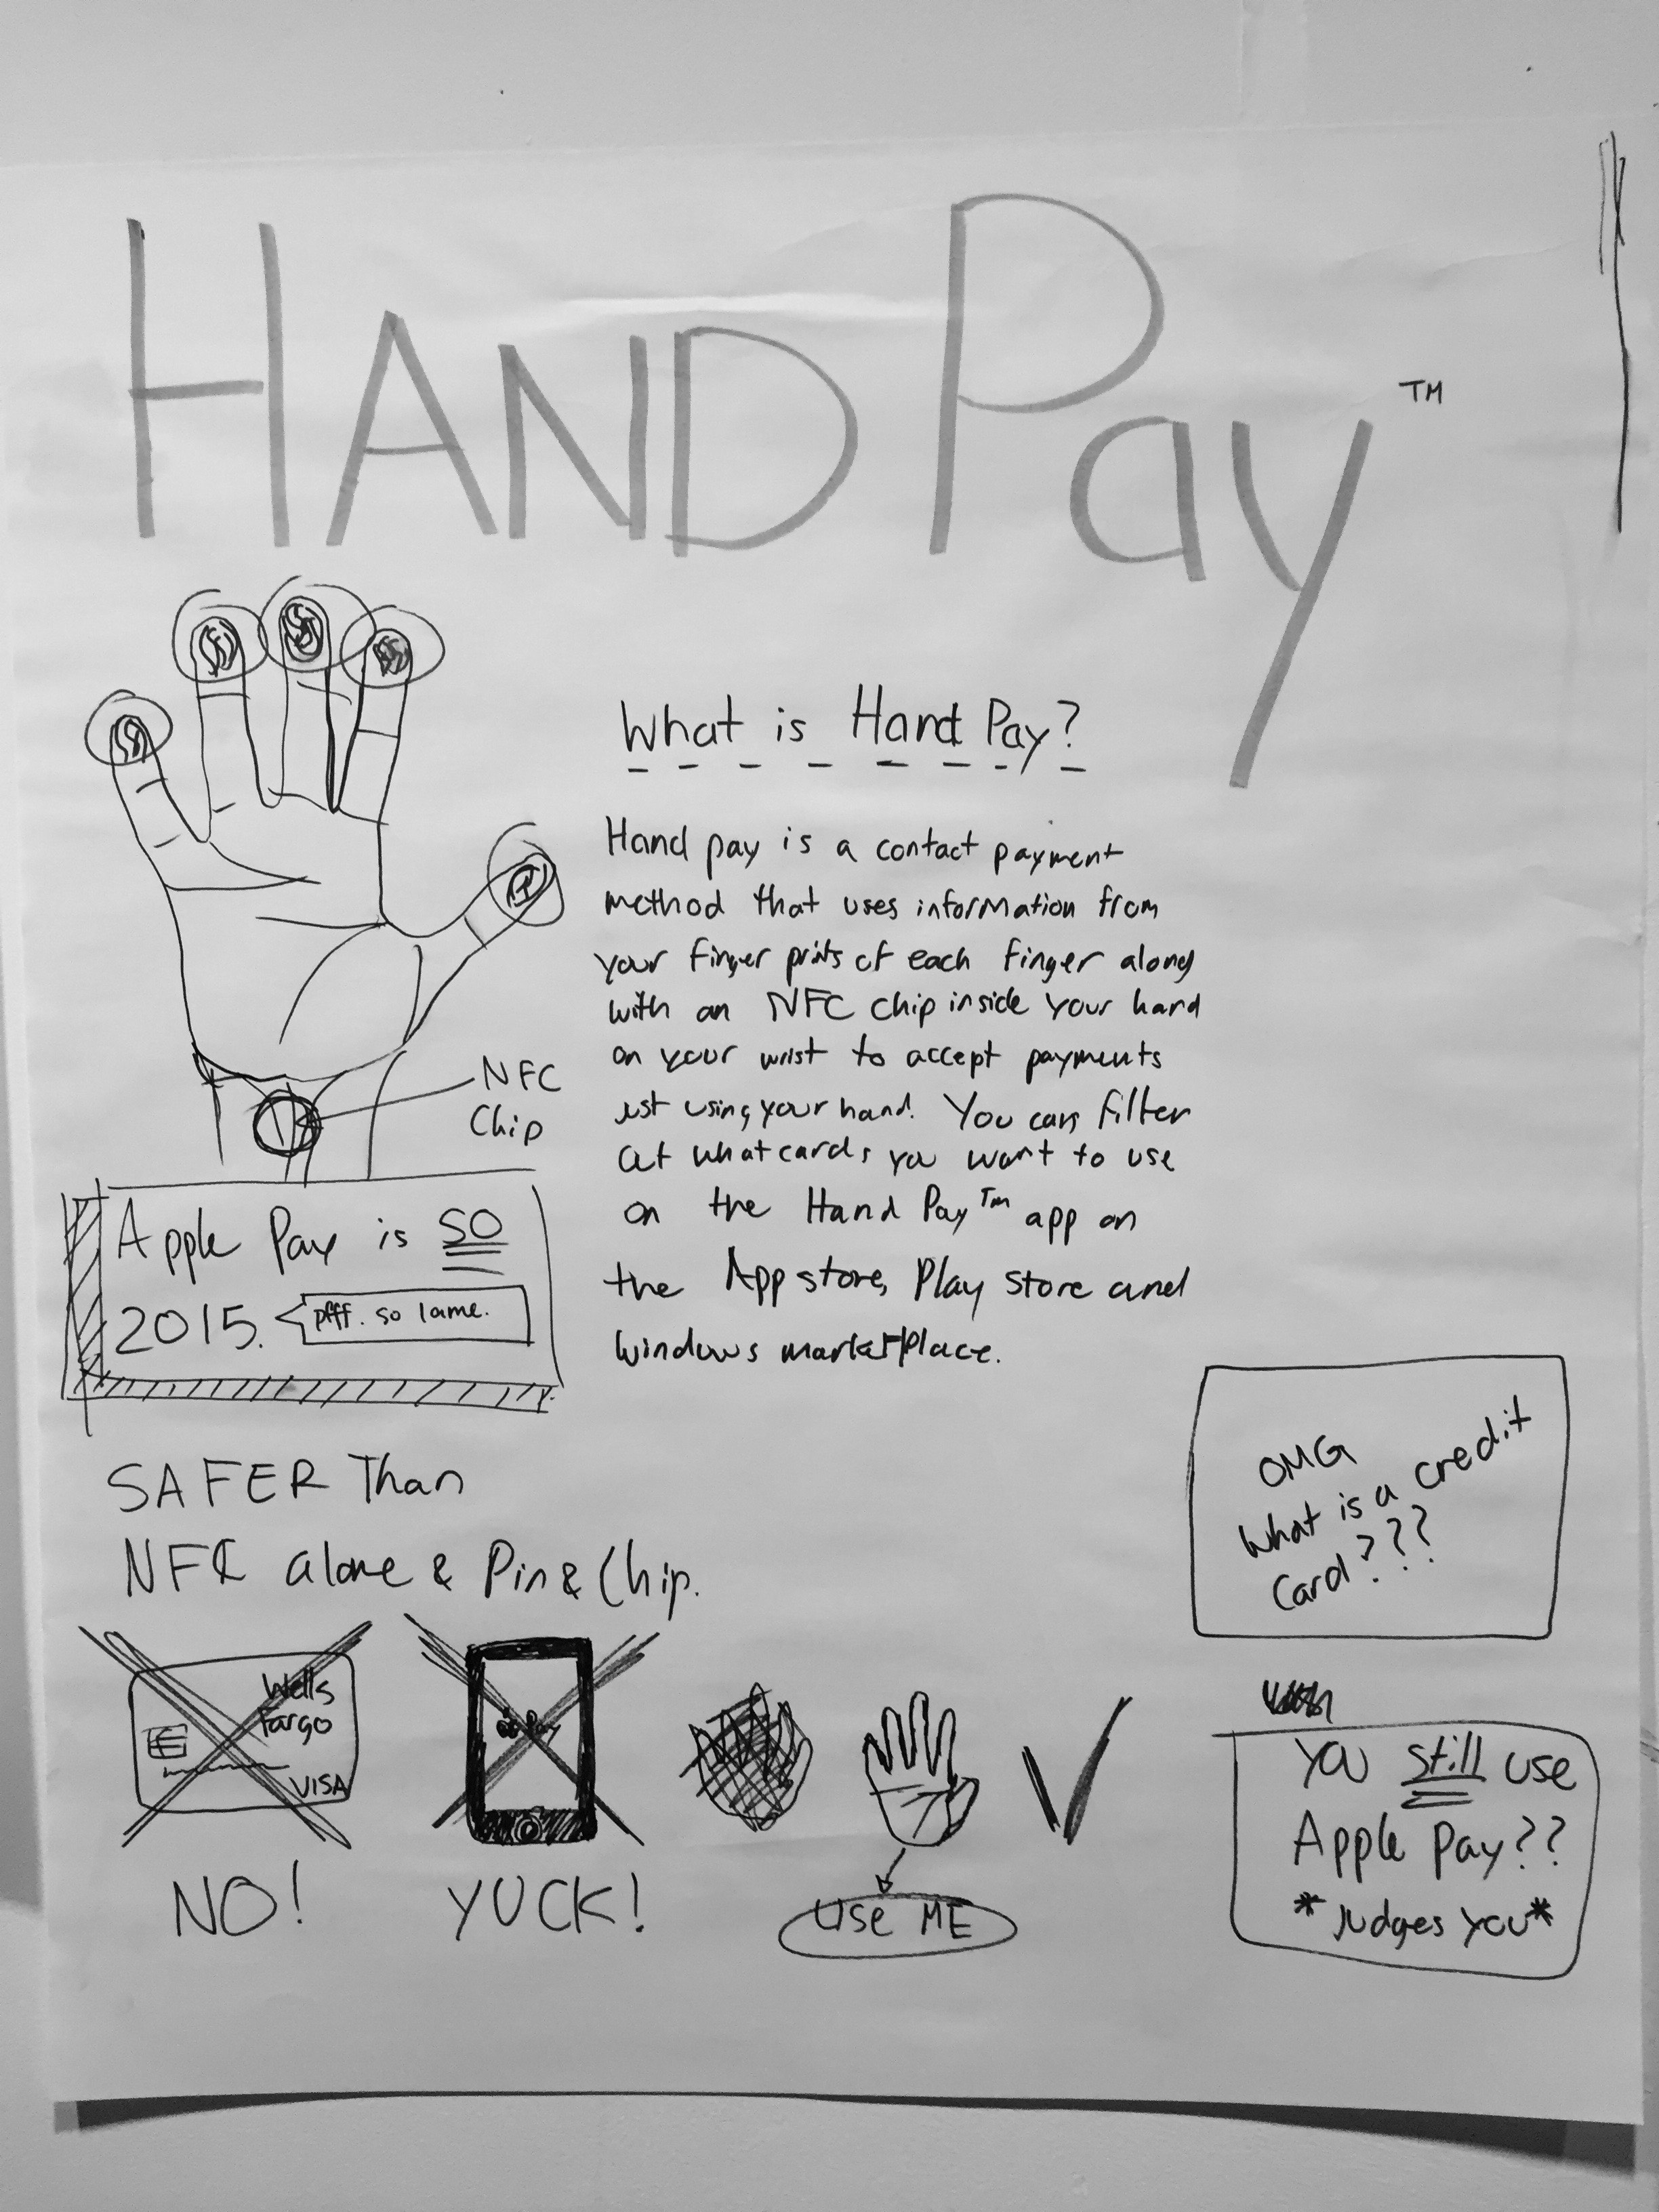 HAND Pay TM
What is Hand Pay?
Hand pay is a contact payment
method that uses information from
your finger prints of each finger along
with an NFC chip inside your hand
on your wrist to accept payments
just using your hand. You can filter
out what cards you want to use
on the Hand Pay™ app on
the App store, Play store and
windows marketplace.
NFC
Chip
Apple Pay is SO
2015.
pfff. so lame.
SAFER Than
NFC alone & Pin & Chip.
Wells
Fargo
VISA
NO!
Pay
YUCK!
USE ME
OMG
What is a credit
Card???
You still use
Apple Pay??
*Judges you*